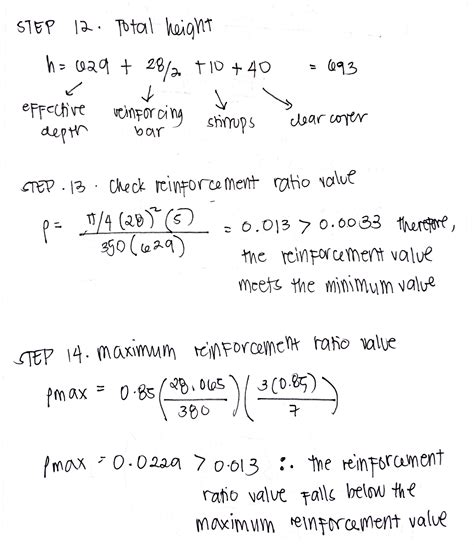 STEP 12. Total height
h = 629 + 28/2 + 10 + 40 = 693
effective depth
reinforcing bar
stirrups
clear cover
STEP . 13 . Check reinforcement ratio value
ρ = π/4 (28)² (5) / 350 (629) = 0.013 > 0.0033 therefore,
the reinforcement value
meets the minimum value
STEP 14. maximum reinforcement ratio value
ρmax = 0.85 (28.065 / 380) (3(0.85) / 7)
ρmax = 0.0229 > 0.013 ∴ the reinforcement
ratio value falls below the
maximum reinforcement value